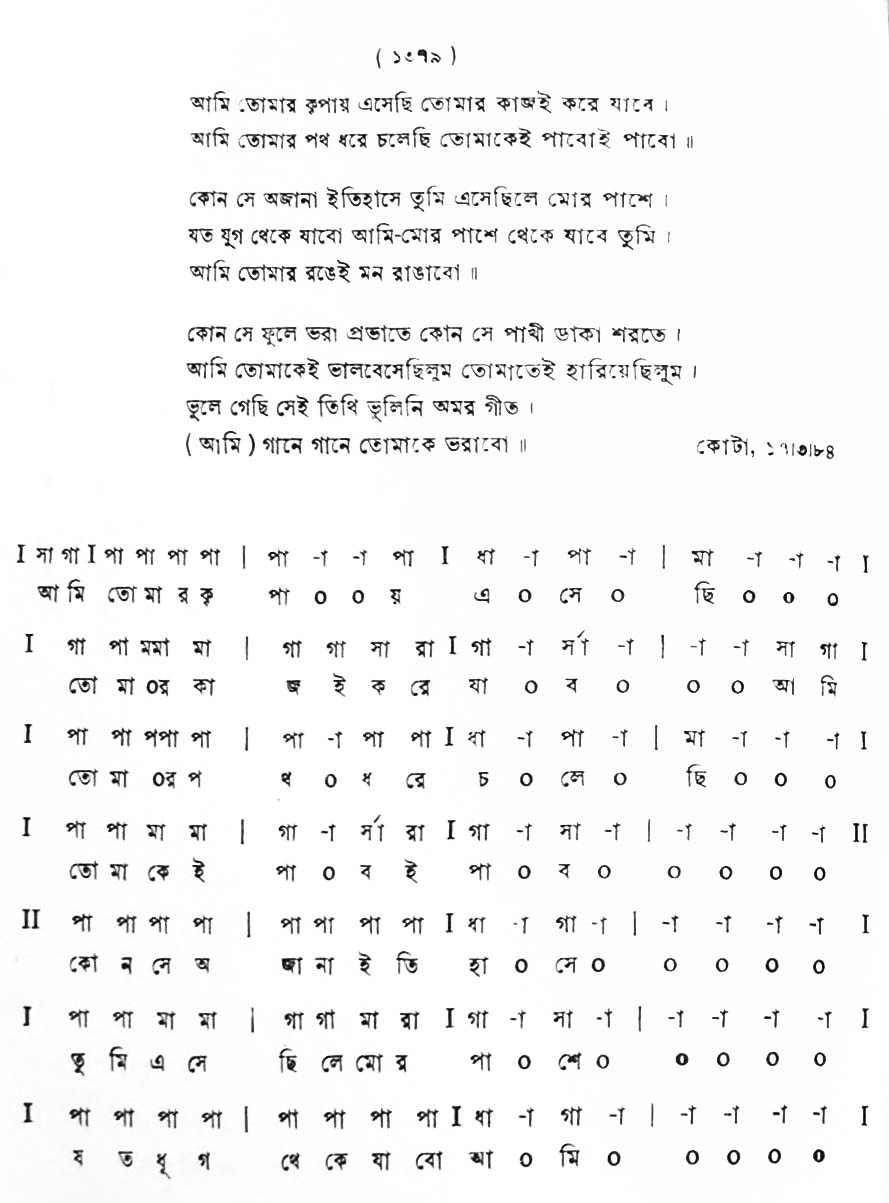 ( ১৩৭৯ )
আমি তোমার কৃপায় এসেছি তোমার কাজই করে যাবে ।
আমি তোমার পথ ধরে চলেছি তোমাকেই পাবোই পাবো ॥
কোন সে অজানা ইতিহাসে তুমি এসেছিলে মোর পাশে ।
যত যুগ থেকে যাবো আমি-মোর পাশে থেকে যাবে তুমি ।
আমি তোমার রঙেই মন রাঙাবো ॥
কোন সে ফুলে ভরা প্রভাতে কোন সে পাখী ডাকা শরতে ।
আমি তোমাকেই ভালবেসেছিলুম তোমাতেই হারিয়েছিলুম ।
ভুলে গেছি সেই তিথি ভুলিনি অমর গীত ।
( আমি ) গানে গানে তোমাকে ভরাবো ॥ কোটা, ১৭।৩।৮৪
I সা গা I পা পা পা পা | পা -া -া পা I ধা -া পা -া | মা -া -া -া I
আ মি তো মা র কৃ পা ০ ০ য় এ ০ সে ০ ছি ০ ০ ০
I গা পা মমা মা | গা গা সা রা I গা -া র্সা -া | -া -া সা গা I
তো মা ০র কা জ ই ক রে যা ০ ব ০ ০ ০ আ মি
I পা পা পপা পা | পা -া পা পা I ধা -া পা -া | মা -া -া -া I
তো মা ০র প থ ০ ধ রে চ ০ লে ০ ছি ০ ০ ০
I পা পা মা মা | গা -া র্সা রা I গা -া সা -া | -া -া -া -া II
তো মা কে ই পা ০ ব ই পা ০ ব ০ ০ ০ ০ ০
II পা পা পা পা | পা পা পা পা I ধা -া গা -া | -া -া -া -া I
কো ন সে অ জা না ই তি হা ০ সে ০ ০ ০ ০ ০
I পা পা মা মা | গা গা মা রা I গা -া সা -া | -া -া -া -া I
তু মি এ সে ছি লে মো র পা ০ শে ০ ০ ০ ০ ০
I পা পা পা পা | পা পা পা পা I ধা -া গা -া | -া -া -া -া I
য ত যূ গ থে কে যা বো আ ০ মি ০ ০ ০ ০ ০